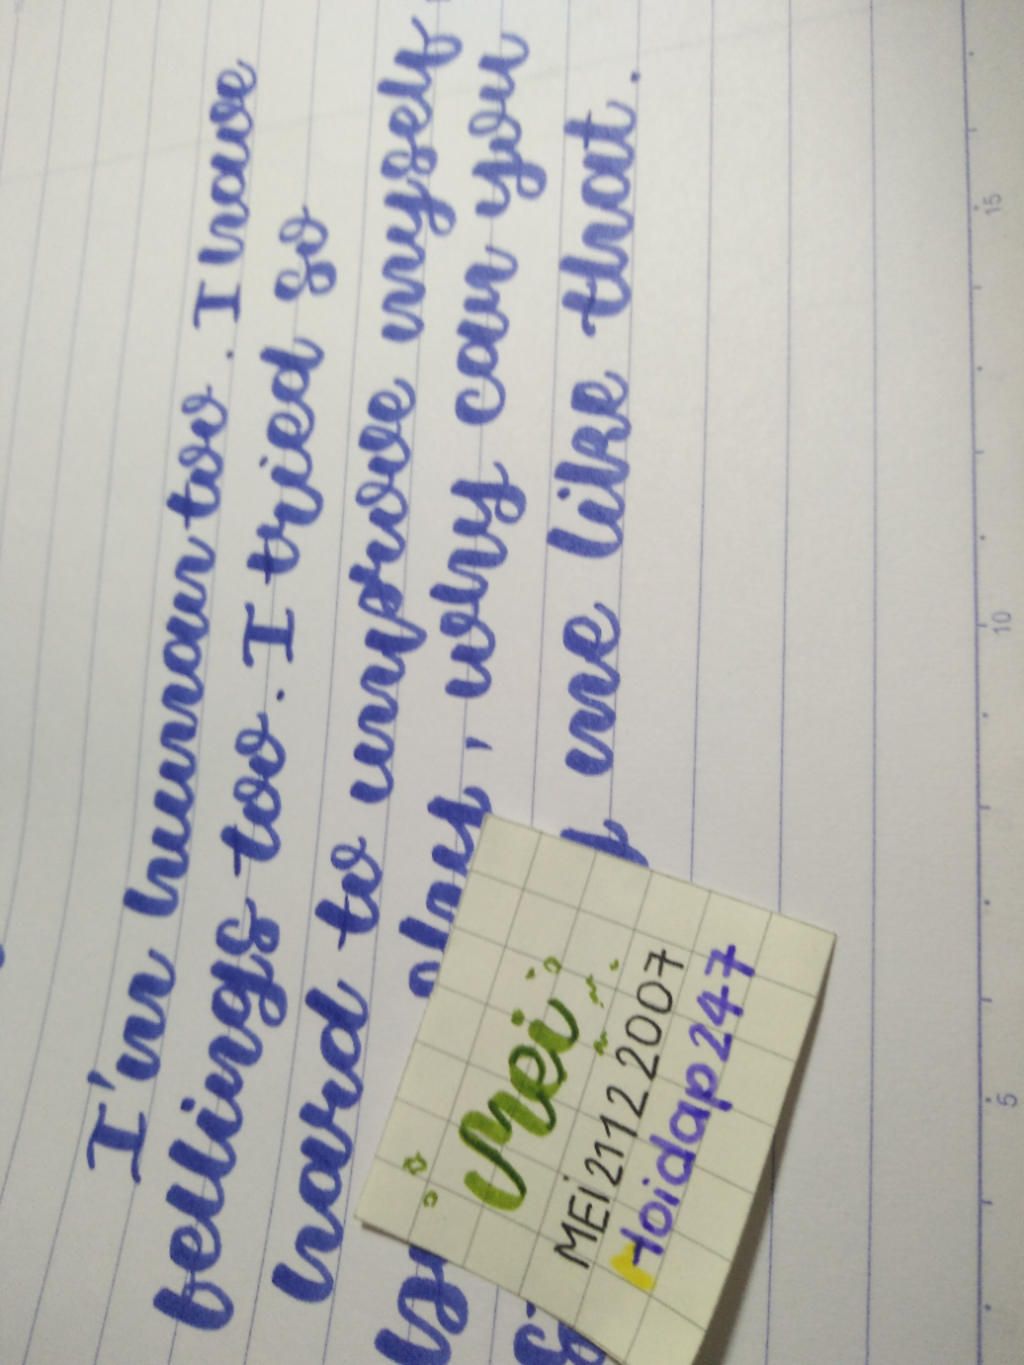 I'm human too. I have
fellings too. I tried so
hard to improve myself
day, why can you
me like that.
Mei
MEi21122007
hoidap247
15
10
5